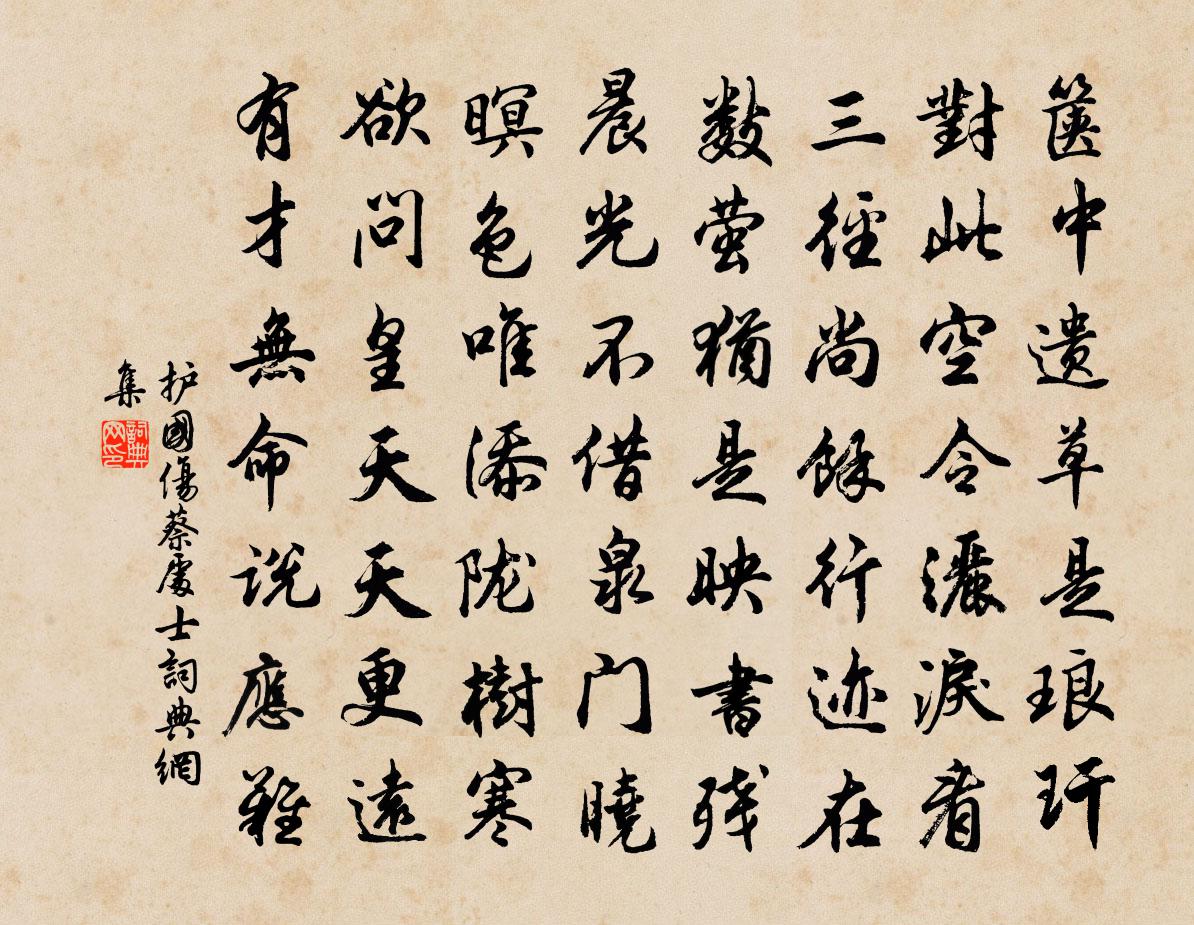 箧中遗草是琅玕
對此空令灑淚看
三徑尚餘行迹在
數萤猶是映書残
晨光不借泉门曉
暝色唯添陇樹寒
欲問皇天天更遠
有才無命说應難
护國傷蔡處士詞典網
集
詞典网印